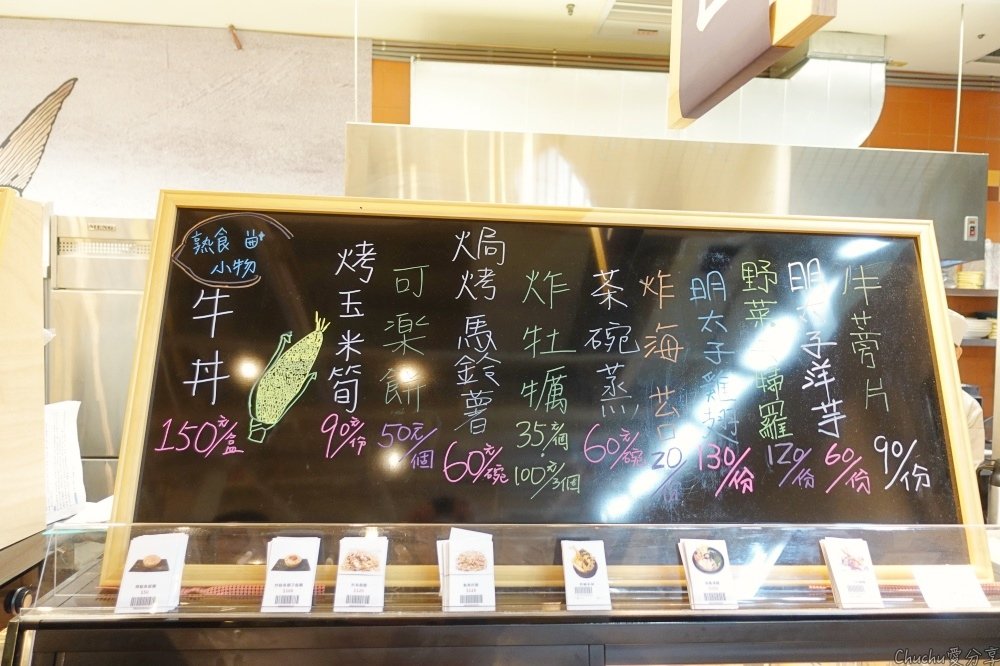 熟食
小物
牛丼
150元/盒
烤玉米筍
90元/份
可楽餅
50元/個
焗烤馬鈴薯
60元/碗
炸牡蠣
35元/個
100元/3個
茶碗蒸
60元/碗
炸海苔
20/份
明太子雞翅
130/份
野菜天婦羅
120/份
明太子洋芋
60/份
牛蒡片
90/份
Chuchu愛分享